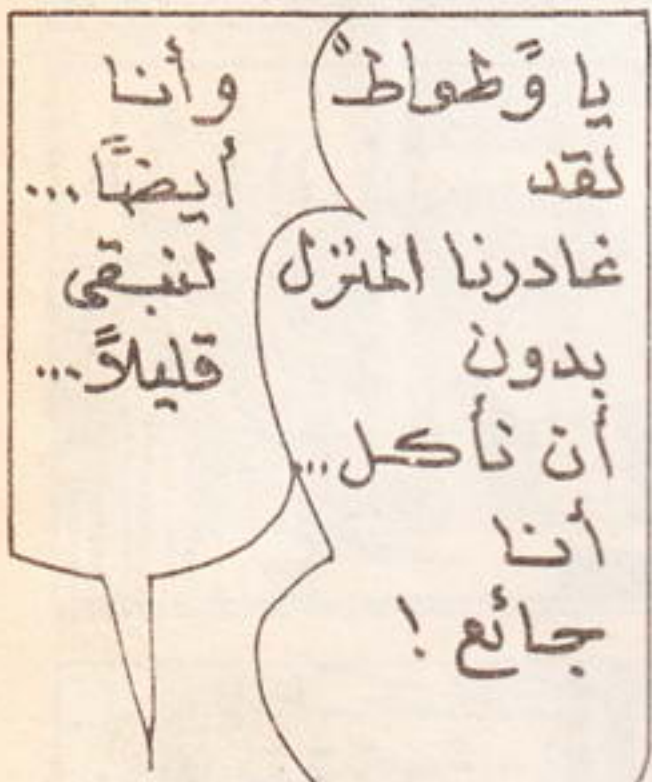 يا "وطواط"
لقد
غادرنا المنزل
بدون
أن نأكل...
أنا
جائع !
وأنا
أيضًا...
لنبقى
قليلاً...